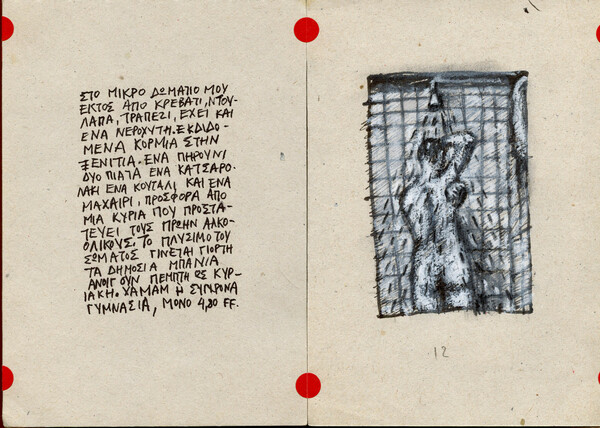 ΣΤΟ ΜΙΚΡΟ ΔΩΜΑΤΙΟ ΜΟΥ
ΕΚΤΟΣ ΑΠΟ ΚΡΕΒΑΤΙ, ΝΤΟΥ-
ΛΑΠΑ, ΤΡΑΠΕΖΙ, ΕΧΕΙ ΚΑΙ
ΕΝΑ ΝΕΡΟΧΥΤΗ. ΕΚΔΙΔΟ-
ΜΕΝΑ ΚΟΡΜΙΑ ΣΤΗΝ
ΞΕΝΙΤΙΑ. ΕΝΑ ΠΗΡΟΥΝΙ
ΔΥΟ ΠΙΑΤΑ ΕΝΑ ΚΑΤΣΑΡΟ-
ΛΑΚΙ ΕΝΑ ΚΟΥΤΑΛΙ ΚΑΙ ΕΝΑ
ΜΑΧΑΙΡΙ, ΠΡΟΣΦΟΡΑ ΑΠΟ
ΜΙΑ ΚΥΡΙΑ ΠΟΥ ΠΡΟΣΤΑ-
ΤΕΥΕΙ ΤΟΥΣ ΠΡΩΗΝ ΑΛΚΟ-
ΟΛΙΚΟΥΣ. ΤΟ ΠΛΥΣΙΜΟ ΤΟΥ
ΣΩΜΑΤΟΣ ΓΙΝΕΤΑΙ ΓΙΟΡΤΗ
ΤΑ ΔΗΜΟΣΙΑ ΜΠΑΝΙΑ
ΑΝΟΙΓΟΥΝ ΠΕΜΠΤΗ ΩΣ ΚΥΡ-
ΙΑΚΗ. ΧΑΜΑΜ Η ΣΥΓΧΡΟΝΑ
ΓΥΜΝΑΣΙΑ, ΜΟΝΟ 4,80 FF.
12